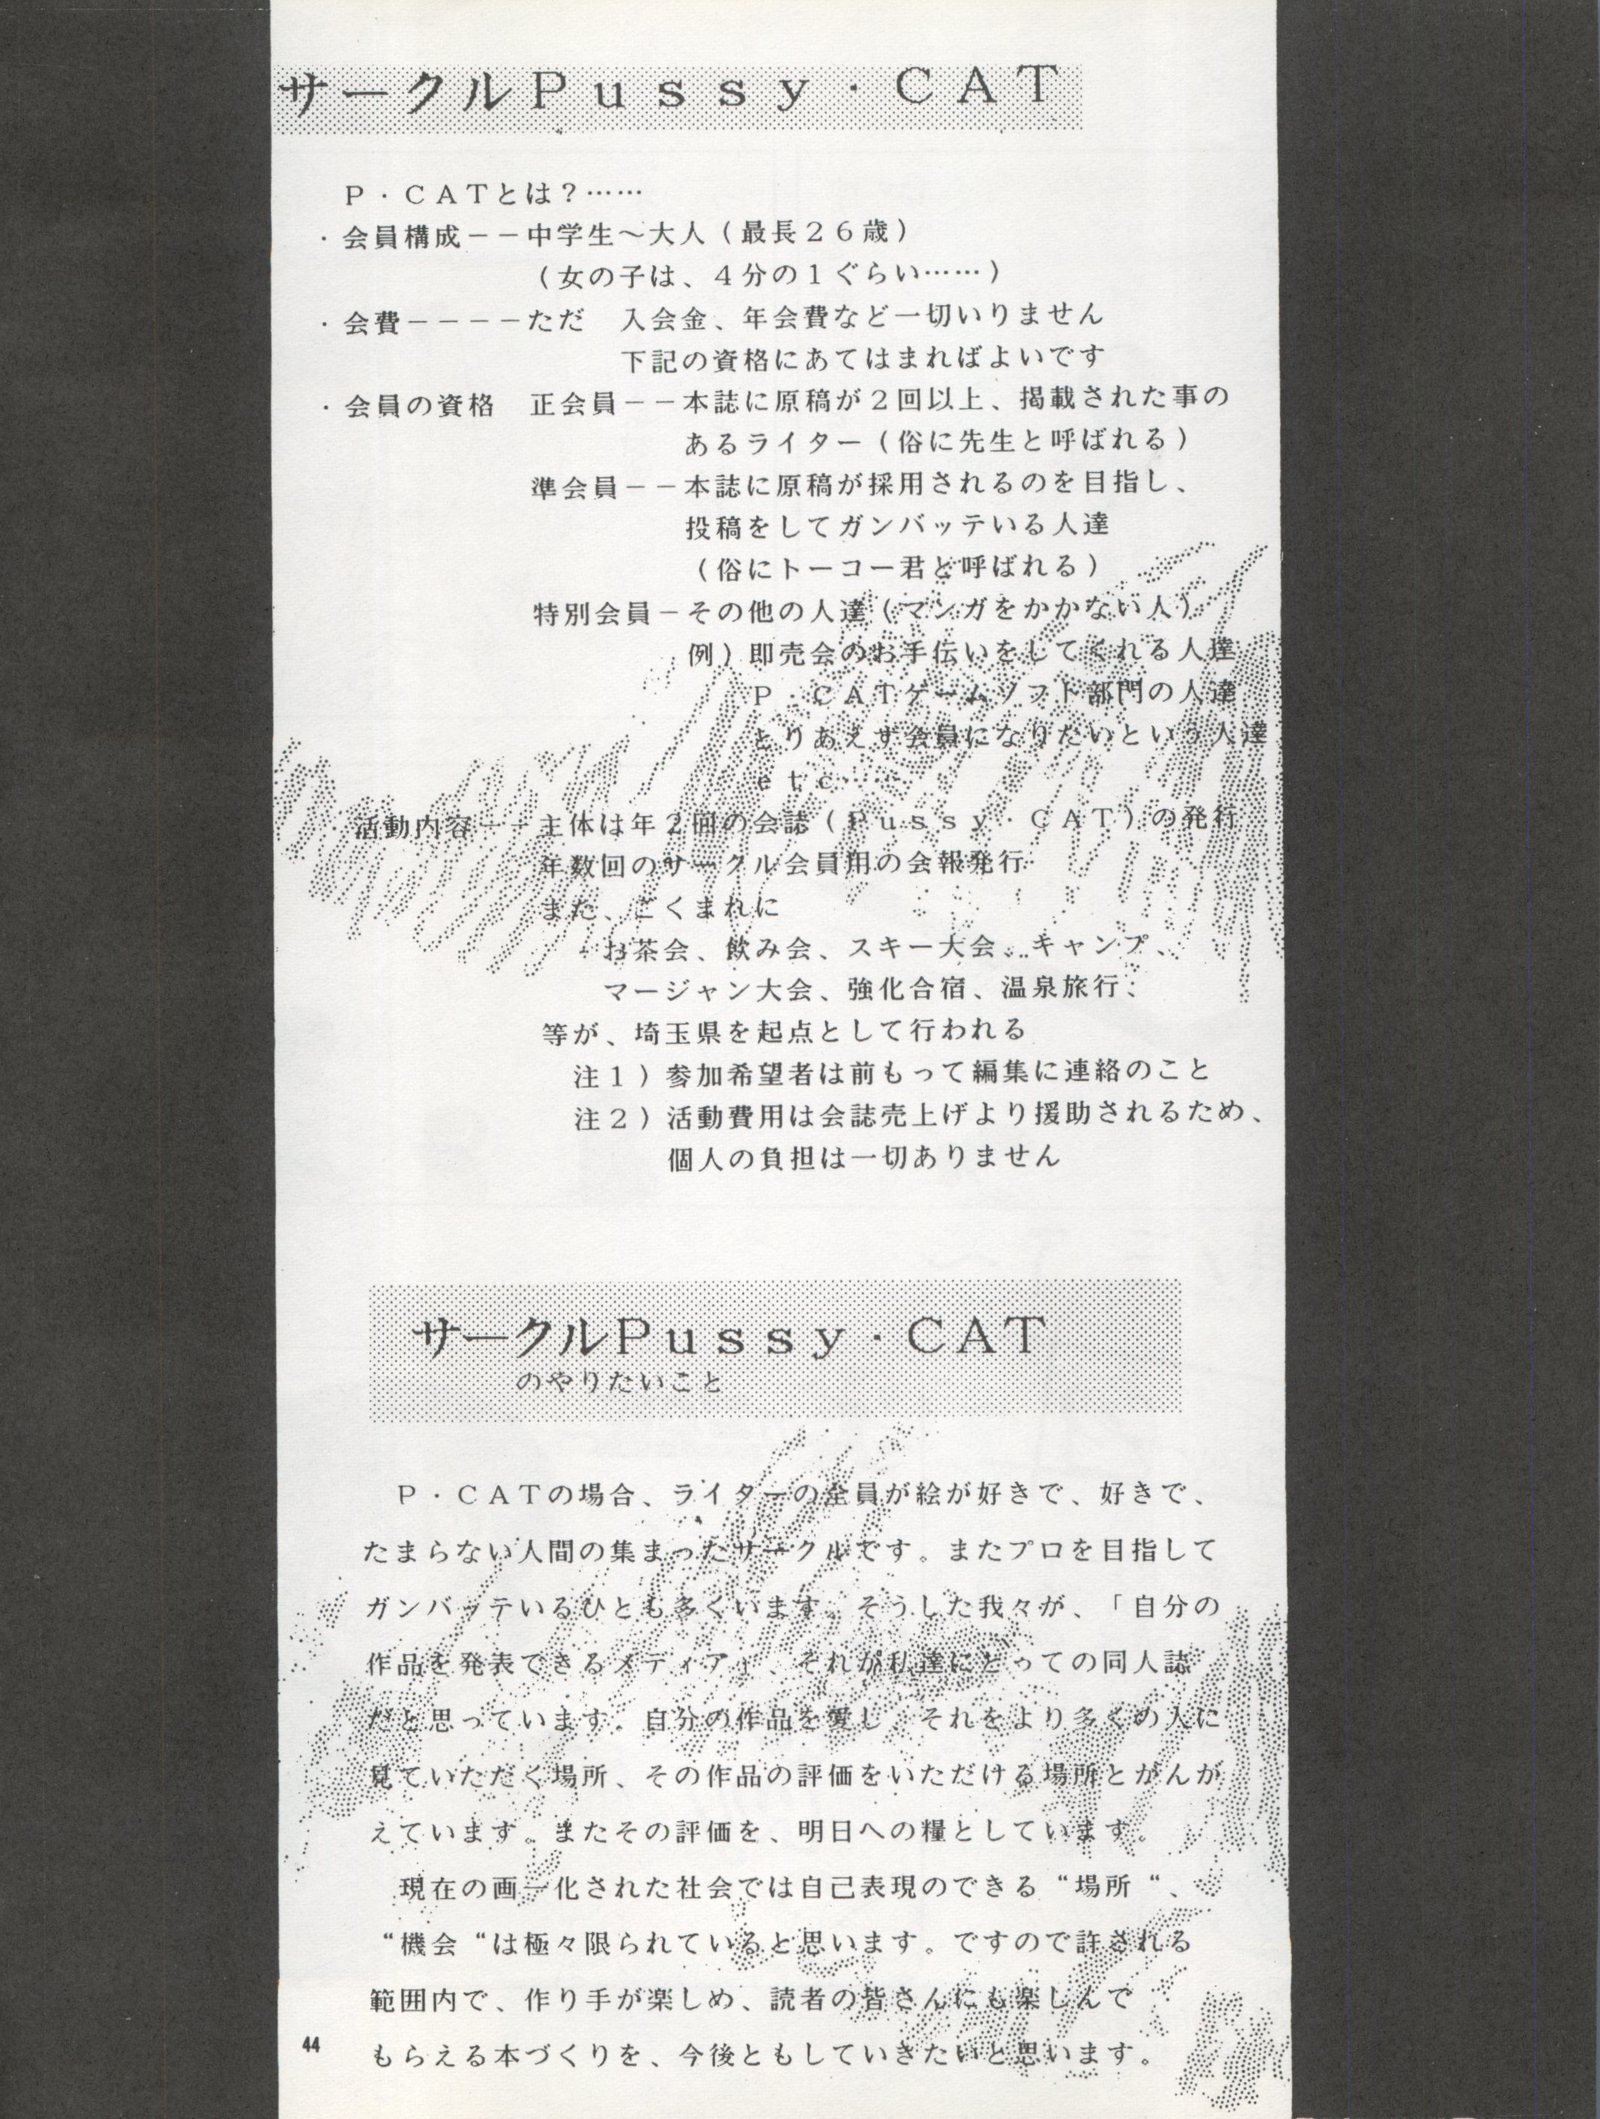 サークルPussy・CAT
P・CATとは？……
・会員構成－－中学生～大人（最長26歳）
（女の子は、4分の1ぐらい……）
・会費－－－－ただ　入会金、年会費など一切いりません
下記の資格にあてはまればよいです
・会員の資格　正会員－－本誌に原稿が2回以上、掲載された事の
あるライター（俗に先生と呼ばれる）
準会員－－本誌に原稿が採用されるのを目指し、
投稿をしてガンバッテいる人達
（俗にトーコー君と呼ばれる）
特別会員－その他の人達（マンガをかかない人）
例）即売会のお手伝いをしてくれる人達
P・CATゲームソフト部門の人達
とりあえず会員になりたいという人達
etc……
・活動内容－－主体は年2回の会誌（Pussy・CAT）の発行
年数回のサークル会員用の会報発行
また、ごくまれに
お茶会、飲み会、スキー大会、キャンプ、
マージャン大会、強化合宿、温泉旅行、
等が、埼玉県を起点として行われる
注1）参加希望者は前もって編集に連絡のこと
注2）活動費用は会誌売上げより援助されるため、
個人の負担は一切ありません
サークルPussy・CAT
のやりたいこと
P・CATの場合、ライターの全員が絵が好きで、好きで、
たまらない人間の集まったサークルです。またプロを目指して
ガンバッテいるひとも多くいます。そうした我々が、「自分の
作品を発表できるメディア」、それが私達にとっての同人誌
だと思っています。自分の作品を愛し、それをより多くの人に
見ていただく場所、その作品の評価をいただける場所とかんが
えています。またその評価を、明日への糧としています。
現在の画一化された社会では自己表現のできる“場所“、
“機会“は極々限られていると思います。ですので許される
範囲内で、作り手が楽しめ、読者の皆さんにも楽しんで
もらえる本づくりを、今後ともしていきたいと思います。
44